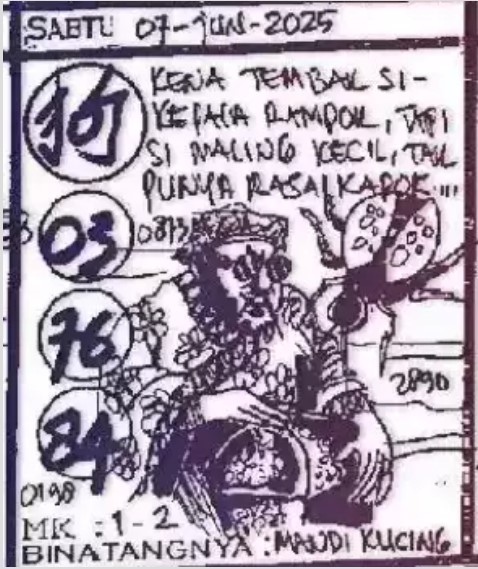 SABTU 07-JUN-2025
KENA TEMBAK SI-
KEPALA RAMPOK, TAPI
SI MALING KECIL, TAK
PUNYA RASA KAPOK...
03
76
84
2890
0198
MK : 1-2
BINATANGNYA : MANDI KUCING